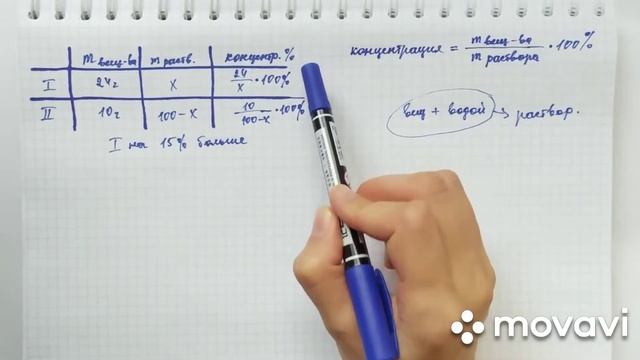 m вещ-ва m раств. концентр. %
I 24г x 24/x · 100%
II 10г 100-x 10/100-x · 100%
I на 15% больше
концентрация = m вещ-ва/m раствора · 100%
вещ + водой → раствор.
movavi